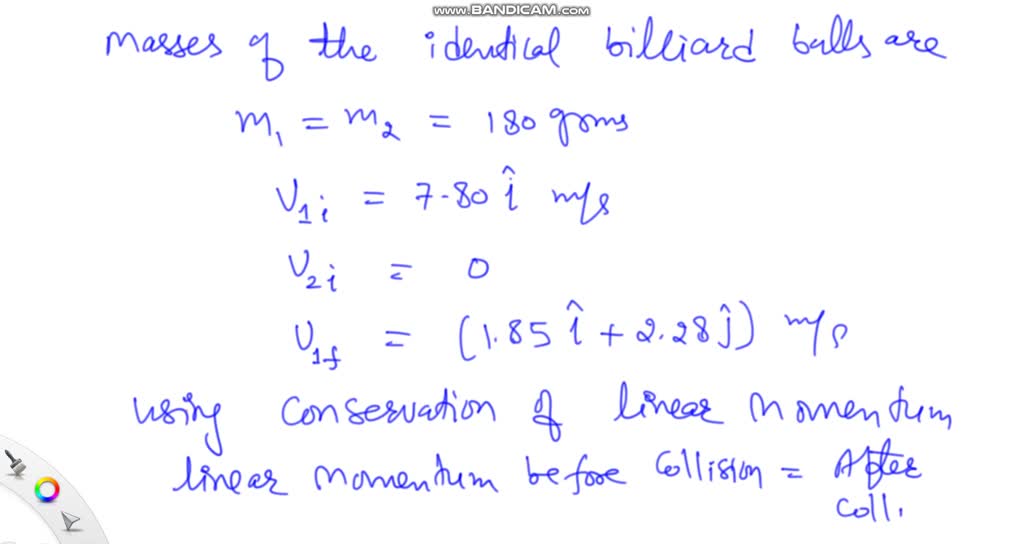 www.BANDICAM.com
masses of the identical billiard balls are
m₁ = m₂ = 180 grms
V₁ᵢ = 7.80 î m/s
V₂ᵢ = 0
V₁f = (1.85 î + 2.28 ĵ) m/s
using conservation of linear momentum
linear momentum before collision = After
coll.